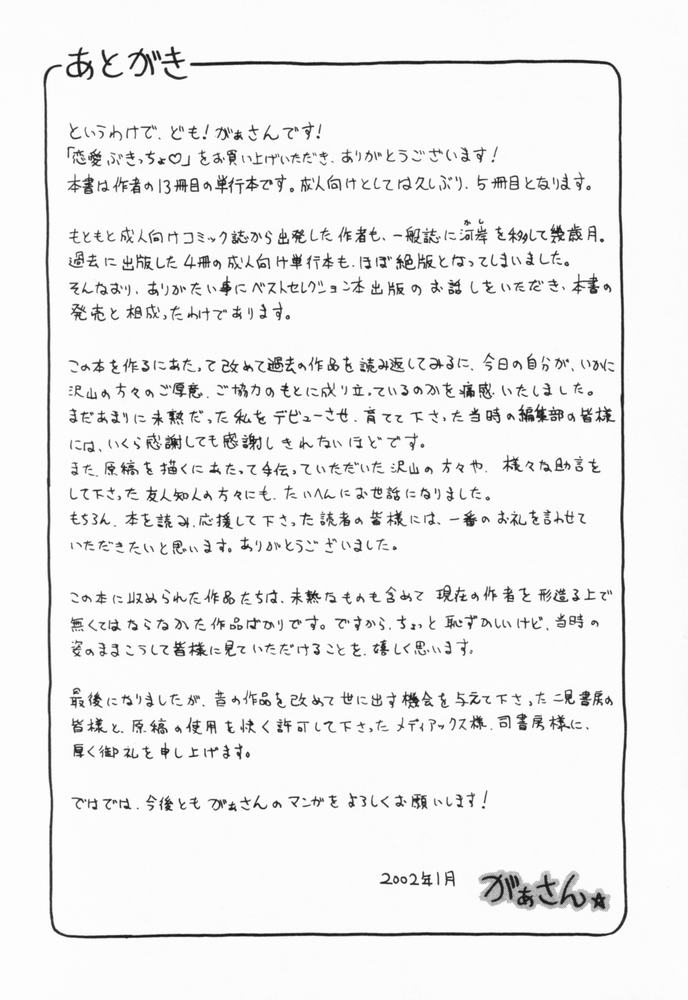 あとがき
というわけで、ども!がぁさんです!
「恋愛ぶきっちょ♡」をお買い上げいただき、ありがとうございます!
本書は作者の13冊目の単行本です。成人向けとしては久しぶり、5冊目となります。
もともと成人向けコミック誌から出発した作者も、一般誌に河岸を移して幾歳月。
過去に出版した4冊の成人向け単行本も、ほぼ絶版となってしまいました。
そんなおり、ありがたい事にベストセレクション本出版のお話しをいただき、本書の
発売と相成ったわけであります。
この本を作るにあたって改めて過去の作品を読み返してみるに、今日の自分が、いかに
沢山の方々のご厚意、ご協力のもとに成り立っているのかを痛感いたしました。
まだあまりに未熟だった私をデビューさせ、育てて下さった当時の編集部の皆様
には、いくら感謝しても感謝しきれないほどです。
また、原稿を描くにあたって手伝っていただいた沢山の方々や、様々な助言を
して下さった友人知人の方々にも、たいへんにお世話になりました。
もちろん、本を読み、応援して下さった読者の皆様には、一番のお礼を言わせて
いただきたいと思います。ありがとうございました。
この本に収められた作品たちは、未熟なものも含めて現在の作者を形造る上で
無くてはならなかた作品ばかりです。ですから、ちょっと恥ずかしいけど、当時の
姿のままこうして皆様に見ていただけることを、嬉しく思います。
最後になりましたが、昔の作品を改めて世に出す機会を与えて下さった二見書房の
皆様と、原稿の使用を快く許可して下さったメディアックス様、司書房様に、
厚く御礼を申し上げます。
ではでは、今後ともがぁさんのマンガをよろしくお願いします!
2002年1月 がぁさん☆